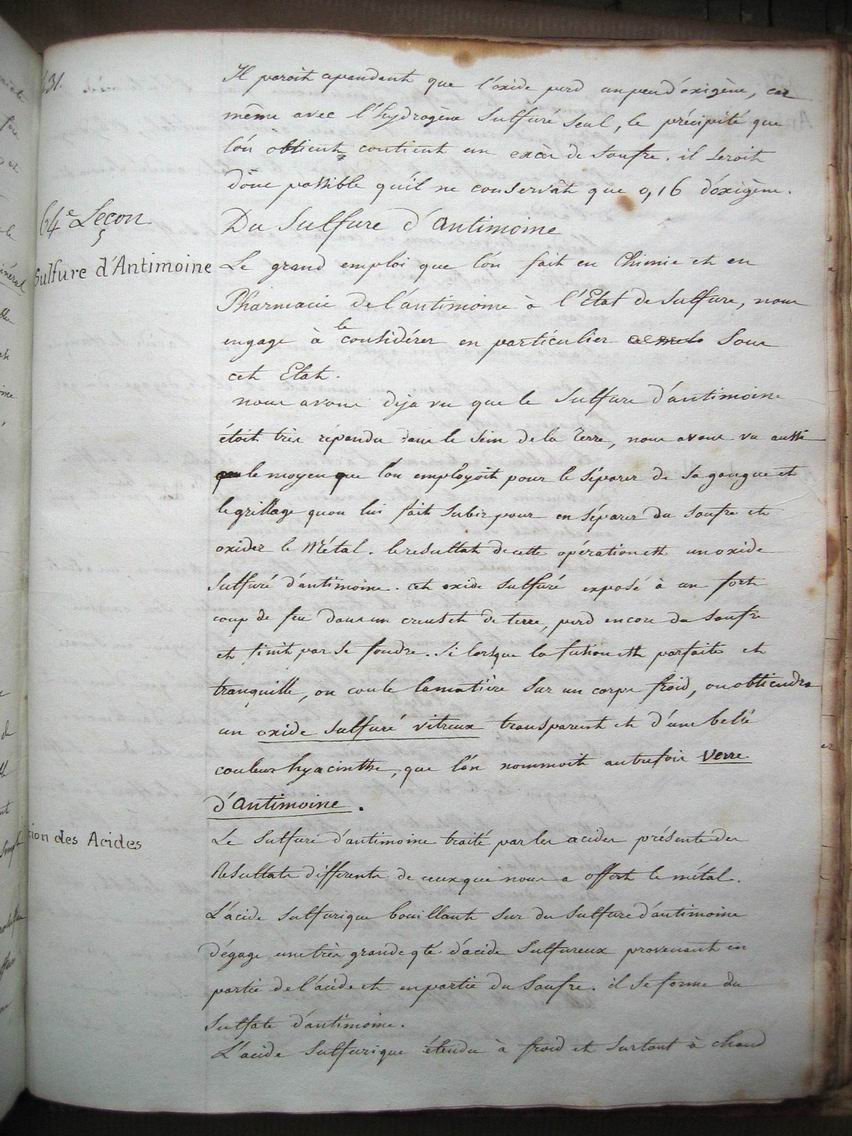 31.
Il paroît cependant que l'oxide perd un peu d'oxigène, car
même avec l'hydrogène sulfuré seul, le précipité que
l'on obtient contient un excès de soufre. il seroit
donc possible qu'il ne conservât que 0,16 d'oxigène.
64e Leçon
Du Sulfure d'antimoine
Sulfure d'Antimoine
Le grand emploi que l'on fait en Chimie et en
Pharmacie de l'antimoine à l'Etat de Sulfure, nous
engage à le considérer en particulier sous
cet Etat.
nous avons déja vu que le Sulfure d'antimoine
étoit très répandu dans le Sein de la Terre, nous avons vu aussi
le moyen que l'on employoit pour le séparer de sa gangue et
le grillage qu'on lui fait subir pour en séparer du soufre et
oxider le Métal. le resultat de cette opération est un oxide
sulfuré d'antimoine. cet oxide sulfuré exposé à un fort
coup de feu dans un creuset de terre, perd encore du soufre
et finit par se fondre. Si lorsque la fusion est parfaite et
tranquille, on coule la matière sur un corps froid, on obtiendra
un oxide sulfuré vitreux transparent et d'une belle
couleur hyacinthe, que l'on nommoit autrefois Verre
d'Antimoine.
tion des Acides
Le Sulfure d'antimoine traité par les acides présente des
Résultats différents de ceux que nous a offert le métal.
L'acide sulfurique bouillant sur du Sulfure d'antimoine
dégage une très grande qté d'acide Sulfureux provenant en
partie de l'acide et en partie du Soufre. il se forme du
Sulfate d'antimoine.
L'acide Sulfurique étendu à froid et surtout à chaud